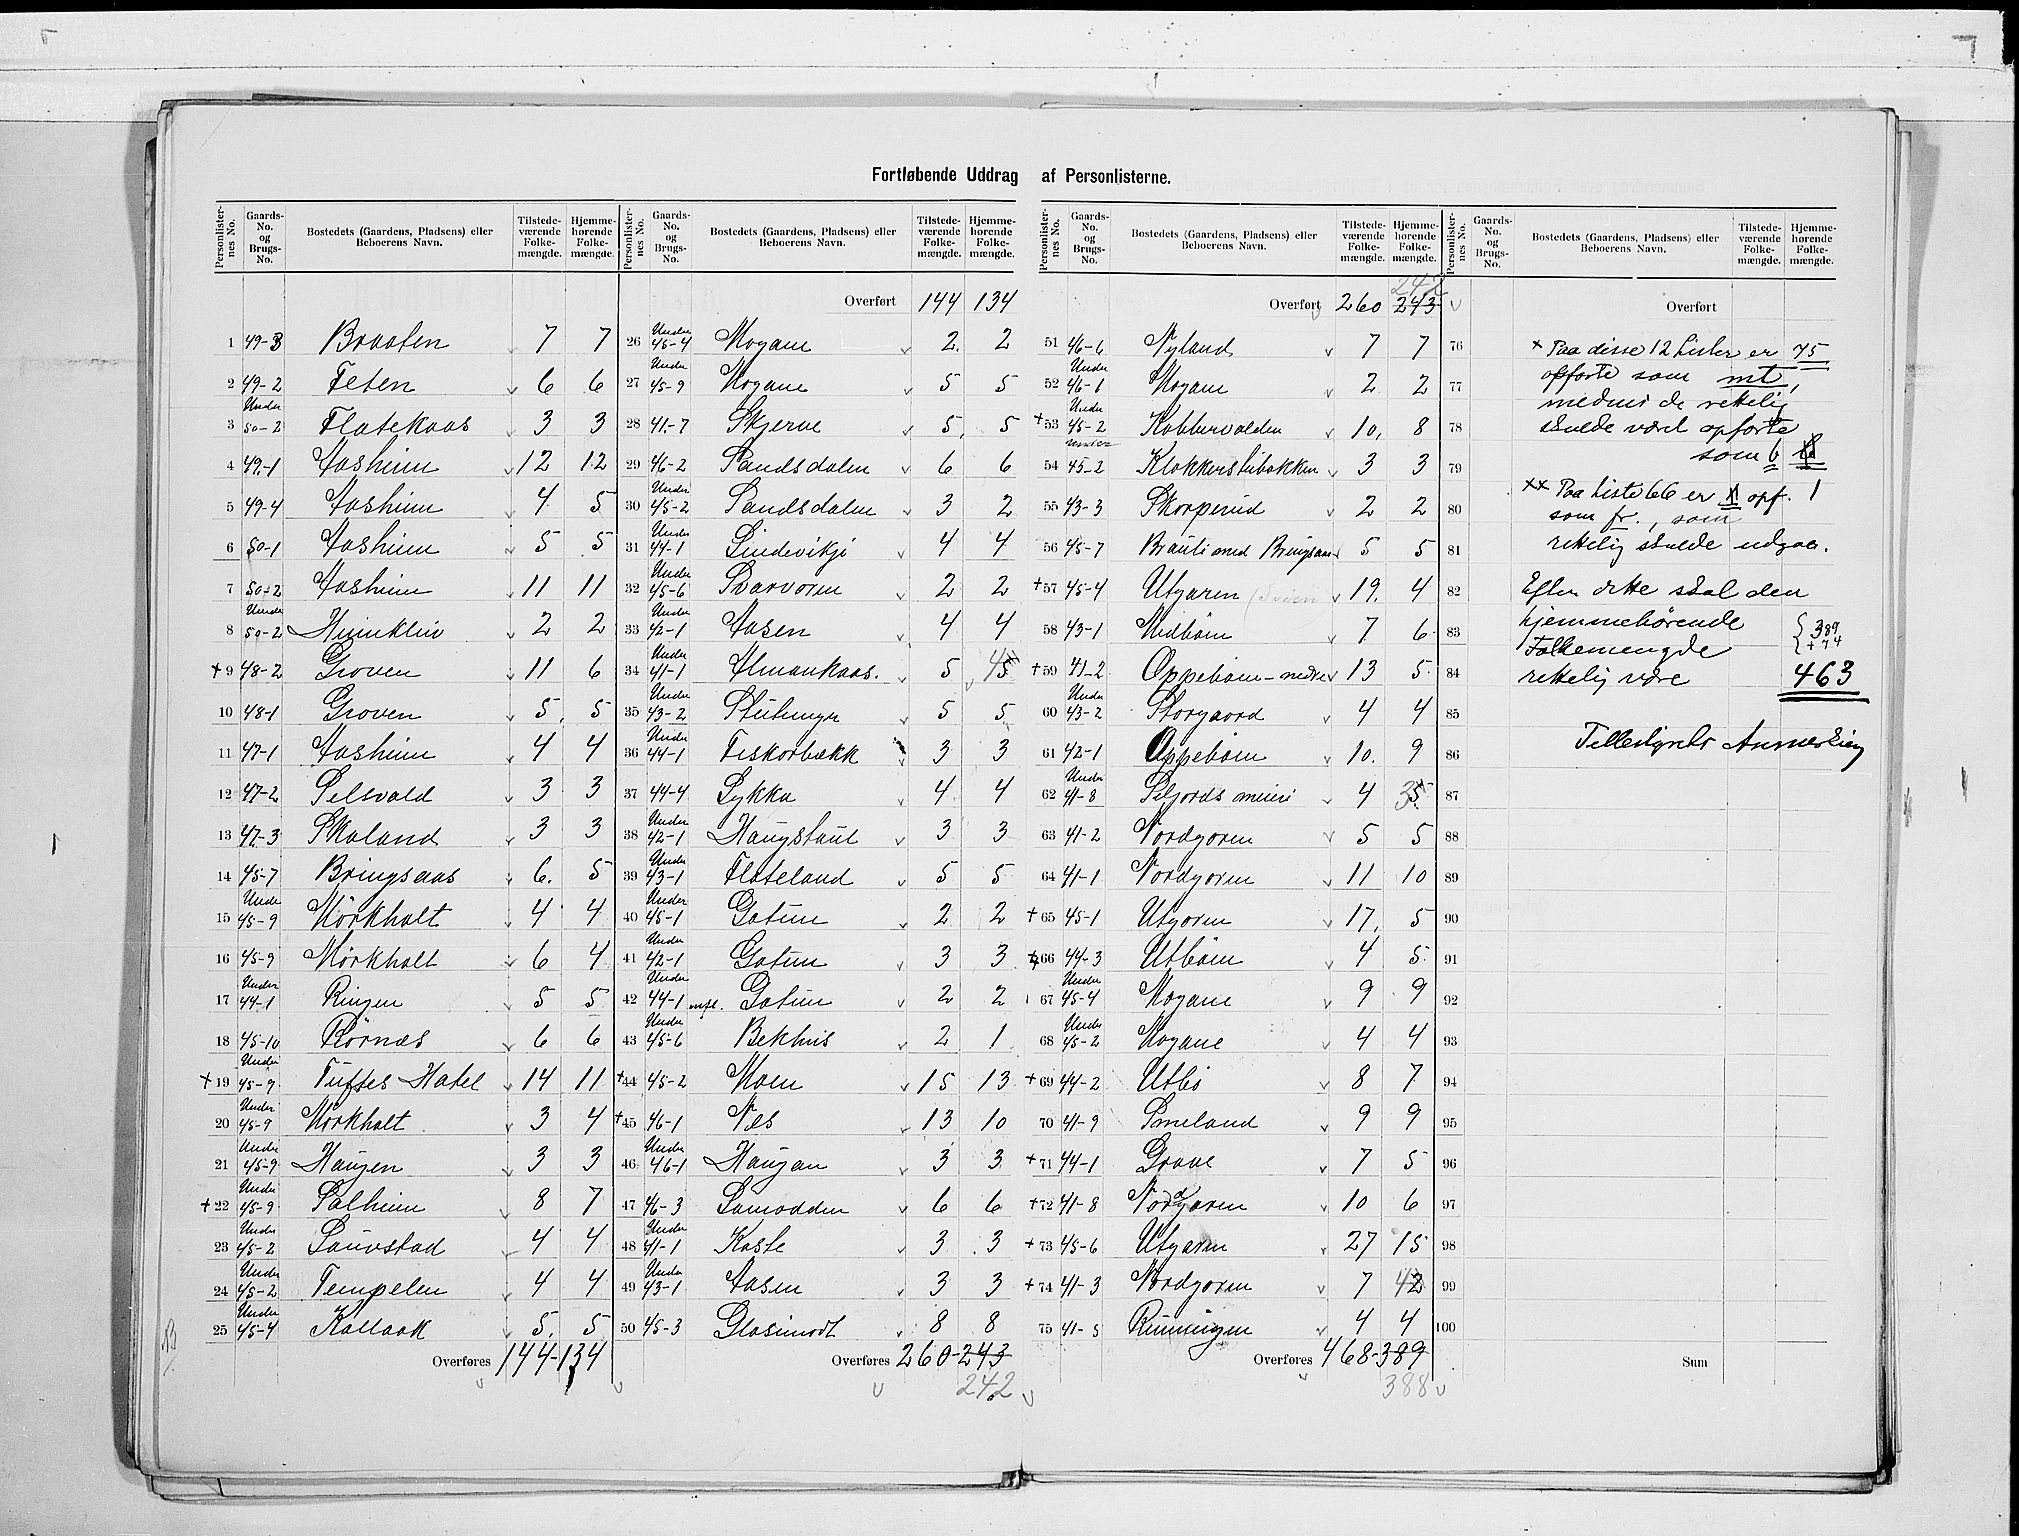 Fortløbende Uddrag af Personlisterne.
Personlister-nes No. Gaards-No. og Brugs-No. Bostedets (Gaardens, Pladsens) eller Beboerens Navn. Tilstede-værende Folke-mængde. Hjemme-hørende Folke-mængde.
1 49-3 Braaten 7 7
2 49-2 Teten 6 6
3 Under 50-2 Flatekaas 3 3
4 49-1 Aasheim 12 12
5 49-4 Aasheim 4 5
6 50-1 Aasheim 5 5
7 50-2 Aasheim 11 11
8 Under 50-2 Heimkliv 2 2
+ 9 48-2 Groven 11 6
10 48-1 Groven 5 5
11 47-1 Aasheim 4 4
12 47-2 Selsvald 3 3
13 47-3 Skaland 3 3
14 45-7 Bringsaas 6 5
15 Under 45-9 Mørkholt 4 4
16 45-9 Mørkholt 6 4
17 Under 44-1 Ringen 5 5
18 45-10 Rørnæs 6 6
+ 19 Under 45-9 Tuftes Hotel 14 11
20 Under 45-9 Mørkholt 3 4
21 Under 45-9 Haugen 3 3
+ 22 Under 45-9 Solheim 8 7
23 Under 45-2 Lauvstad 4 4
24 Under 45-2 Tempelen 4 4
25 Under 45-4 Kallaak 5 5
Overføres 144-134
Personlister-nes No. Gaards-No. og Brugs-No. Bostedets (Gaardens, Pladsens) eller Beboerens Navn. Tilstede-værende Folke-mængde. Hjemme-hørende Folke-mængde.
Overført 144 134
26 Under 45-4 Mogane 2 2
27 Under 45-9 Mogane 5 5
28 41-7 Skjerve 5 5
29 46-2 Sandsdalen 6 6
30 Under 45-2 Sandsdalen 3 2
31 Under 44-1 Lindevikje 4 4
32 Under 45-6 Svarvoren 2 2
33 Under 42-1 Aasen 4 4
34 Under 41-1 Almankaas. 5 4
35 Under 43-2 Stutenger 5 5
36 Under 44-1 Fiskorbækk 3 3
37 44-4 Lykka 4 4
38 Under 42-1 Haugstaul 3 3
39 Under 43-1 Flateland 5 5
40 Under 45-1 Gotun 2 2
41 Under 42-1 Gotun 3 3
42 Under 44-1 Gotun 2 2
43 Under 45-6 Bekhus 2 1
+44 45-2 Moen 15 13
+45 46-1 Næs 13 10
46 Under 46-1 Haugan 3 3
47 46-3 Lamodden 6 6
48 Under 41-1 Kaste 3 3
49 Under 43-1 Aasen 3 3
50 45-3 Glasimodt 8 8
Overføres 260-243
242
Personlister-nes No. Gaards-No. og Brugs-No. Bostedets (Gaardens, Pladsens) eller Beboerens Navn. Tilstede-værende Folke-mængde. Hjemme-hørende Folke-mængde.
242
Overført 260 243
51 46-6 Nyland 7 7
52 Under 46-1 Mogane 2 2
+ 53 Under 45-2 Kobbervolden 10 8
54 under 45-2 Klokkerslibakken 3 3
55 43-3 Skorperud 2 2
56 45-7 Brauti med Bringsaas 5 5
+ 57 45-4 Utgaren 19 4
58 43-1 Midbøen 7 6
+ 59 41-2 Oppebøen - nedre 13 5
60 Under 43-2 Storgaard 4 4
61 42-1 Oppebøen 10 9
62 Under 41-8 Seljords meieri 4 3
63 41-2 Nordgaren 5 5
64 41-1 Nordgoren 11 10
+ 65 45-1 Utgoren 17 5
66 44-3 Utbøen 4 5
67 Under 45-4 Mogane 9 9
68 Under 45-2 Mogane 4 4
+ 69 44-2 Utbø 8 7
70 41-9 Smeland 9 9
+ 71 44-1 Grave 7 5
+ 72 41-8 Nordgaren 10 6
+ 73 45-6 Utgaren 27 15
+ 74 41-3 Nordgoren 7 42
75 41-5 Rinningen 4 4
Overføres 468-389
388
Personlister-nes No. Gaards-No. og Brugs-No. Bostedets (Gaardens, Pladsens) eller Beboerens Navn. Tilstede-værende Folke-mængde. Hjemme-hørende Folke-mængde.
Overført
76 + Paa disse 12 Lister er 75
77 opførte som mt,
medens de rettelig
78 skulde været opførte
79 som b
80 ++ Paa Liste 66 er 1 opf.
som fr., som
81 rettelig skulde udgaa.
82 Efter dette skal den
83 hjemmehørende 389
Folkemengde + 74
84 rettelig være 463
85
86 Tellestyrets Anmerkning
87
88
89
90
91
92
93
94
95
96
97
98
99
100
Sum